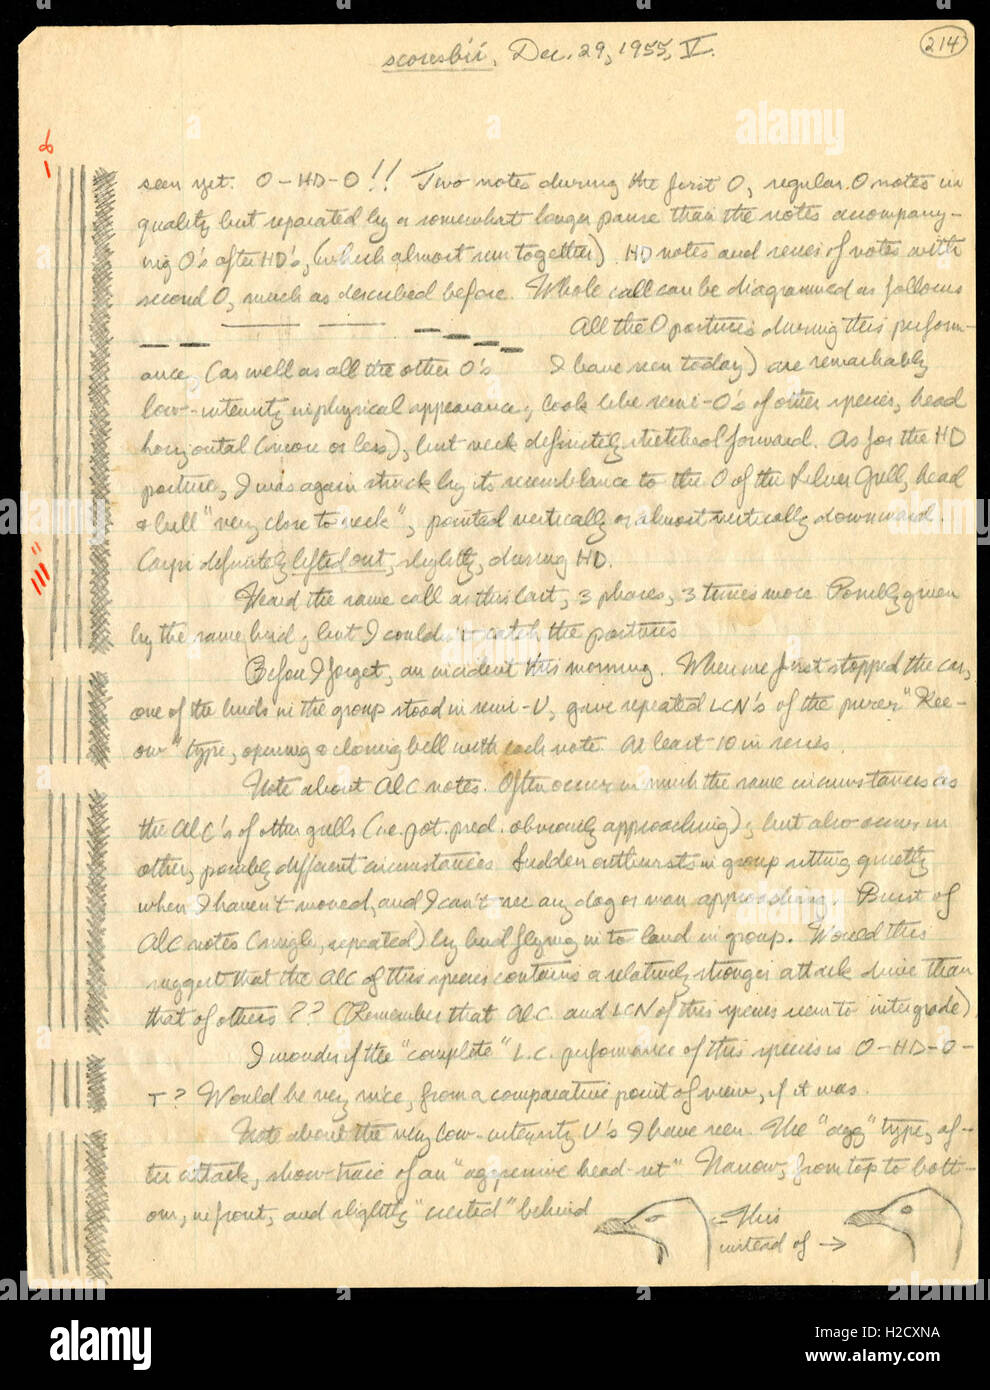 214
scoresbii, Dec. 29, 1955, V.
seen yet. O-HD-O!! Two notes during the first O, regular O notes in
quality but separated by a somewhat longer pause than the notes accompany-
ing O's after HD's, (which almost run together). HD notes and series of notes with
second O, much as described before. Whole call can be diagrammed as follows
All the O postures during this perform-
ance, (as well as all the other O's I have seen today) are remarkably
low-intensity in physical appearance; look like semi-O's of other species, head
horizontal (more or less), but neck definitely stretched forward. As for the HD
posture, I was again struck by its resemblance to the O of the Silver Gull, head
& bill "very close to neck", pointed vertically or almost vertically downward.
Carpi definitely lifted out, slightly, during HD.
Heard the same call as this last, 3 phases, 3 times more Possibly given
by the same bird, but I couldn't catch the postures
Before I forget, an incident this morning. When we first stopped the car,
one of the birds in the group stood in semi-U, gave repeated LCN's of the purer "Kee-
ow" type, opening & closing bill with each note. At least 10 in series.
Note about ALC notes. Often occur in much the same circumstances as
the ALC's of other gulls (i.e. pot. pred. obviously approaching), but also occur in
other, possibly different circumstances. Sudden outbursts in group sitting quietly
when I haven't moved, and I can't see any dog or man approaching. Burst of
ALC notes (single, repeated) by bird flying in to land in group. Would this
suggest that the ALC of this species contains a relatively stronger attack drive than
that of others?? (Remember that ALC and LCN of this species seem to intergrade)
I wonder if the "complete" L.C. performance of this species is O-HD-O-
T? Would be very nice, from a comparative point of view, if it was.
Note about the very low-intensity U's I have seen. The "agg" type, af-
ter attack, show trace of an "aggressive head-set" Narrow, from top to bott-
om, in front, and slightly "crested" behind
This
instead of →
alamy
Image ID: H2CXNA
www.alamy.com